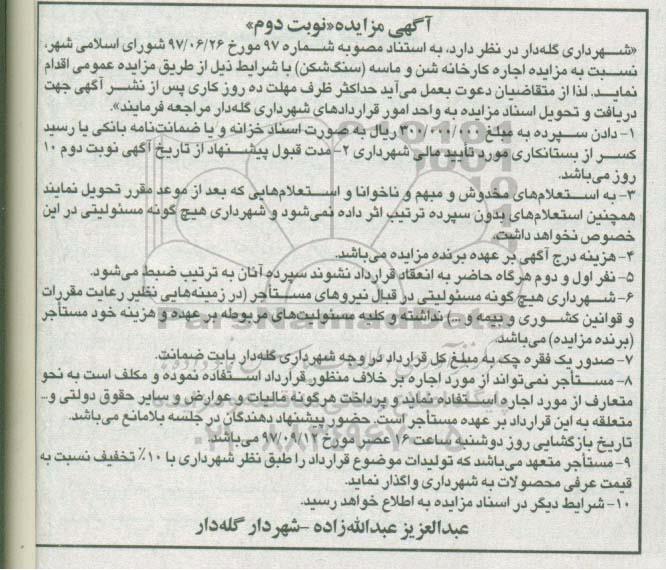 آگهی مزایده«نوبت دوم»
«شهرداری گله‌دار در نظر دارد، به استناد مصوبه شماره ۹۷ مورخ ۹۷/۰۶/۲۶ شورای اسلامی شهر،
نسبت به مزایده اجاره کارخانه شن و ماسه (سنگ‌شکن) با شرایط ذیل از طریق مزایده عمومی اقدام
نماید. لذا از متقاضیان دعوت بعمل می‌آید حداکثر ظرف مهلت ده روز کاری پس از نشر آگهی جهت
دریافت و تحویل اسناد مزایده به واحد امور قراردادهای شهرداری گله‌دار مراجعه فرمایند».
۱- دادن سپرده به مبلغ ۳۰۰/۰۰۰/۰۰۰ ریال به صورت اسناد خزانه و یا ضمانت‌نامه بانکی یا رسید
کسر از بستانکاری مورد تأیید مالی شهرداری ۲- مدت قبول پیشنهاد از تاریخ آگهی نوبت دوم ۱۰
روز می‌باشد.
۳- به استعلام‌های مخدوش و مبهم و ناخوانا و استعلام‌هایی که بعد از موعد مقرر تحویل نمایند
همچنین استعلام‌های بدون سپرده ترتیب اثر داده نمی‌شود و شهرداری هیچ گونه مسئولیتی در این
خصوص نخواهد داشت.
۴- هزینه درج آگهی بر عهده برنده مزایده می‌باشد.
۵- نفر اول و دوم هرگاه حاضر به انعقاد قرارداد نشوند سپرده آنان به ترتیب ضبط می‌شود.
۶- شهرداری هیچ گونه مسئولیتی در قبال نیروهای مستأجر (در زمینه‌هایی نظیر رعایت مقررات
و قوانین کشوری و بیمه و ...) نداشته و کلیه مسئولیت‌های مربوطه بر عهده و هزینه خود مستأجر
(برنده مزایده) می‌باشد.
۷- صدور یک فقره چک به مبلغ کل قرارداد در وجه شهرداری گله‌دار بابت ضمانت.
۸- مستأجر نمی‌تواند از مورد اجاره بر خلاف منظور قرارداد استفاده نموده و مکلف است به نحو
متعارف از مورد اجاره استفاده نماید و پرداخت هرگونه مالیات و عوارض و سایر حقوق دولتی و...
متعلقه به این قرارداد بر عهده مستأجر است. حضور پیشنهاد دهندگان در جلسه بلامانع می‌باشد.
تاریخ بازگشایی روز دوشنبه ساعت ۱۶ عصر مورخ ۹۷/۰۹/۱۲ می‌باشد.
۹- مستأجر متعهد می‌باشد که تولیدات موضوع قرارداد را طبق نظر شهرداری با ۱۰٪ تخفیف نسبت به
قیمت عرفی محصولات به شهرداری واگذار نماید.
۱۰- شرایط دیگر در اسناد مزایده به اطلاع خواهد رسید.
عبدالعزیز عبدالله‌زاده -شهردار گله‌دار
ParsNamadData